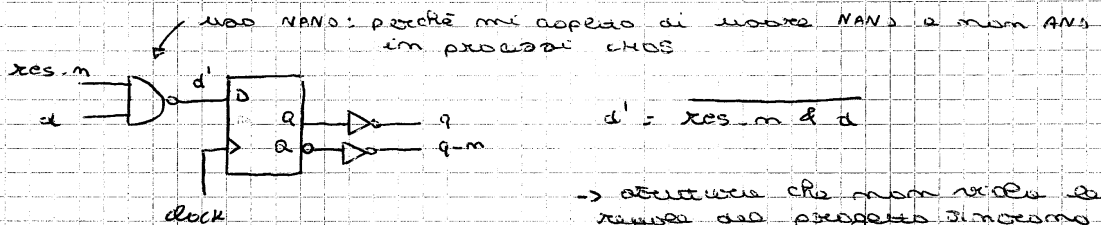 uso NAND: perché mi aspetto di usare NAND e non AND
in processi CMOS
res_n
d'
d
D
Q
q
Q
q_n
clock
d' = res_n & d
-> struttura che non viola le
regole del progetto sincrono